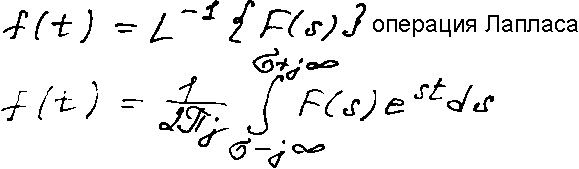 f(t) = L⁻¹{F(s)} операция Лапласа
f(t) = 1/(2πj) ∫_{σ-j∞}^{σ+j∞} F(s)e^{st}ds